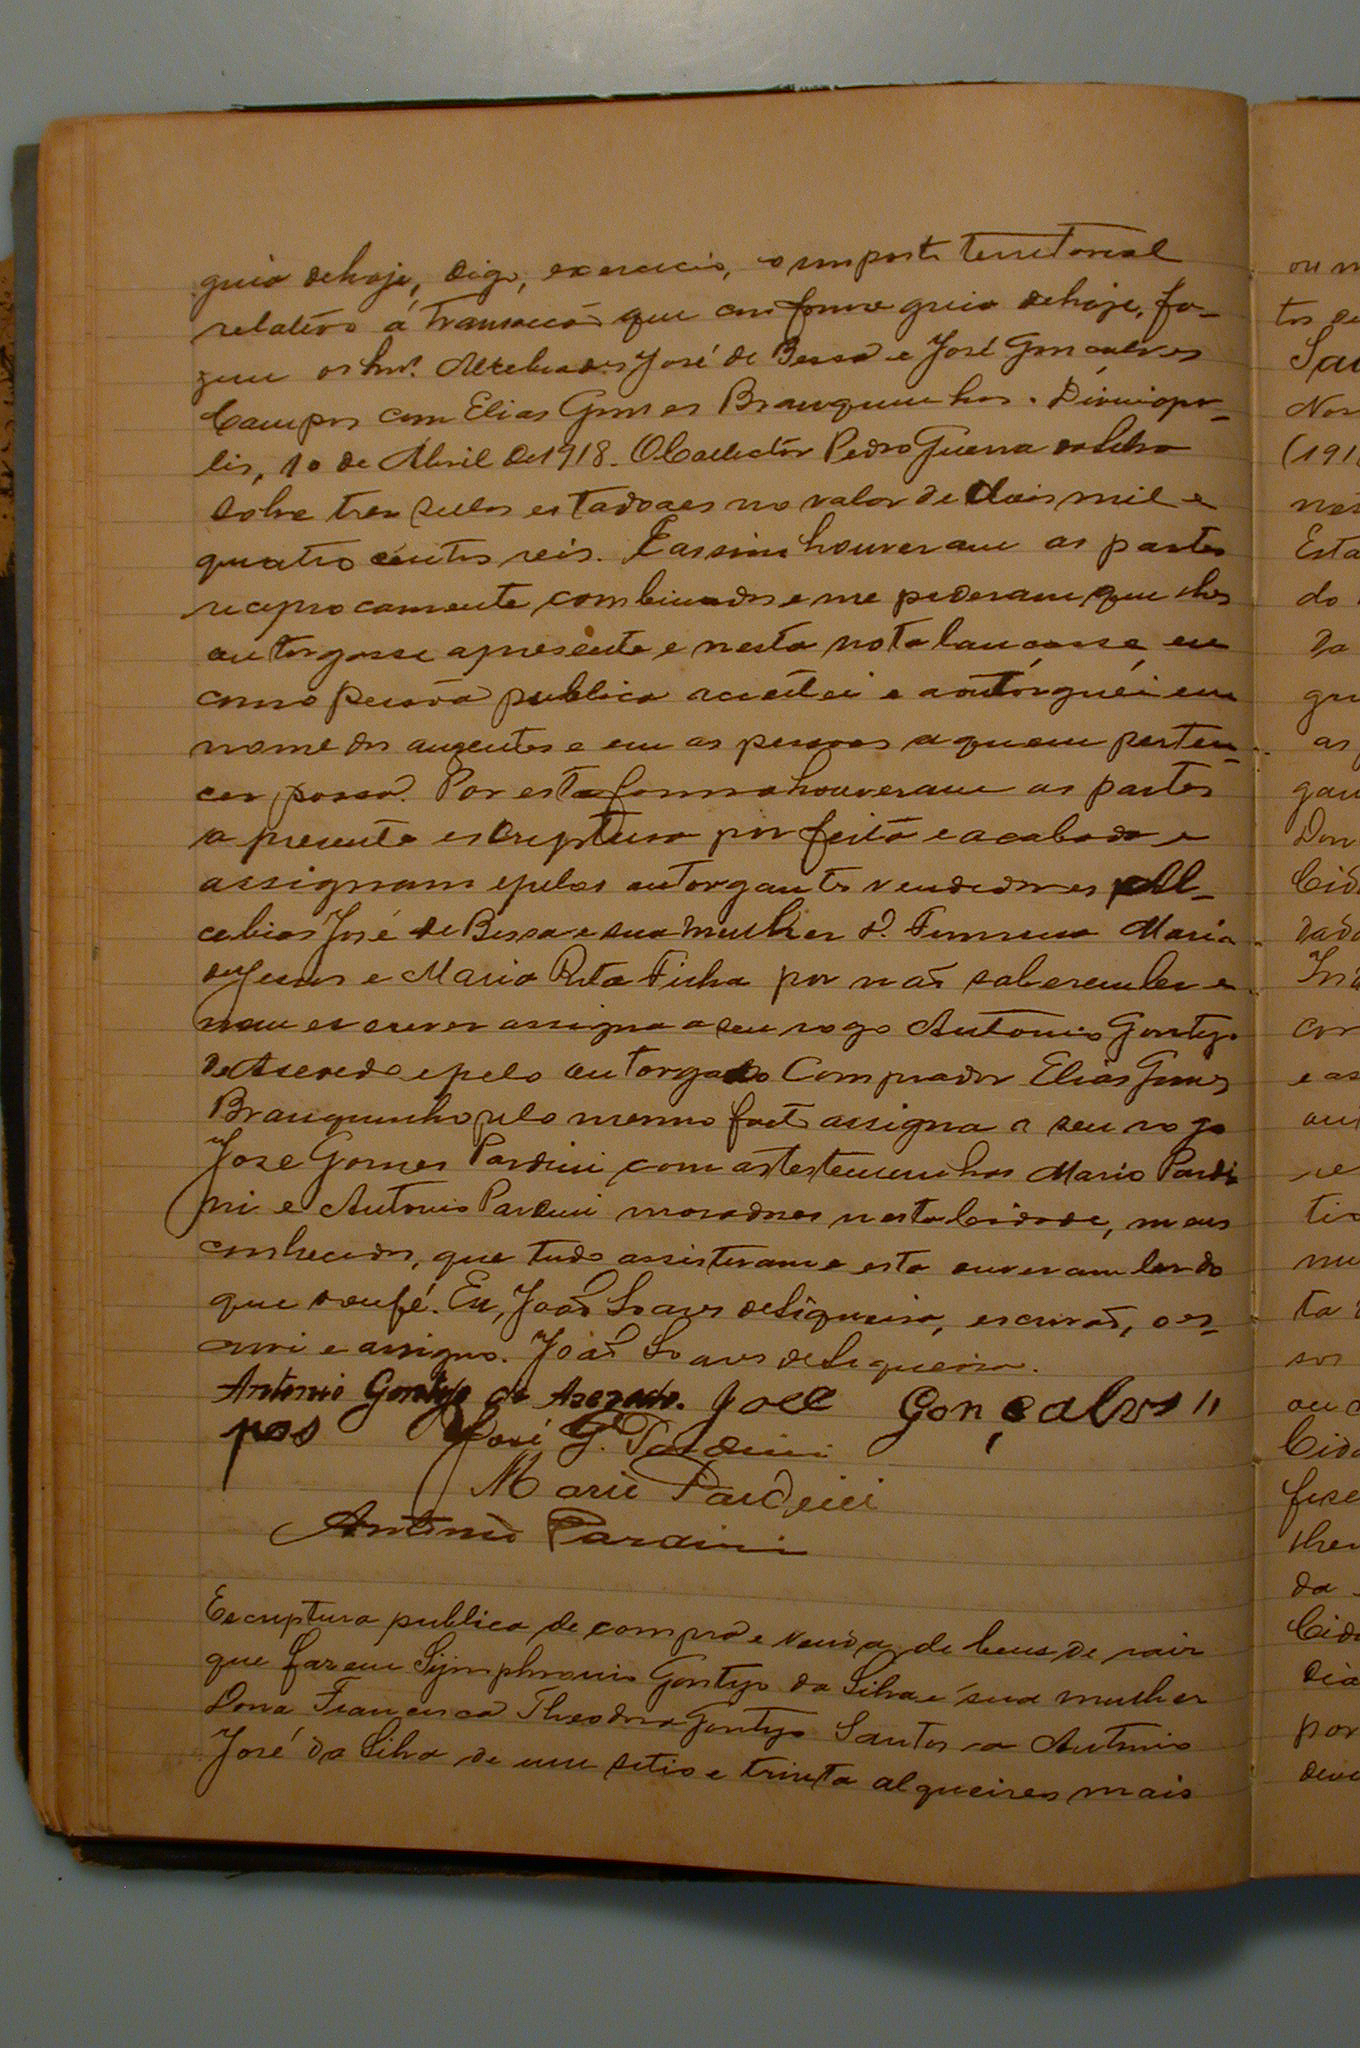 guia de hoje, digo, exercicio, o imposto territorial
relativo á transacção que conforme guia de hoje, fa-
zem os snrs. Alcebiades José de Bessa e José Gonçalves
Campos com Elias Gomes Branquinhos. Divinopo-
lis, 10 de Abril de 1918. O Collector Pedro Guerra
sobre tres sellos estadoaes no valor de dois mil e
quatro centos reis. E assim houveram as partes
reciprocamente combinados e me pederam que lhes
outorgasse a presente e nesta nota lançasse eu
como pessôa publica acceitei e a outorguei em
nome dos auzentes e em as pessoas a quem perten-
cer possa. Por esta forma houveram as partes
a presente escriptura por feita e acabada e
assignam e pelos outorgantes vendedores Al-
cebias José de Bessa e sua mulher D. Maria
de Jesus e Maria Rita por não saberem ler e
nem escrever assigna a seu rogo Antonio Gontijo
de Asevedo e pelo outorgado Comprador Elias Gomes
Branquinho pelo mesmo facto assigna a seu rogo
José Gomes Pardini com as testemunhas Mario Pardi
ni e Antonio Pardini moradores nesta Cidade, meus
conhecidos, que tudo assisteram e esta ouveram ler do
que dou fé. Eu, João Soares de Siqueira, escrivão, o es-
crevi e assigno. João Soares de Siqueira.
Antonio Gontijo de Asevedo. José Gonçalves
pos José G. Pardini
Mario Pardini
Antonio Pardini
Escriptura publica de compra e venda de bens de raiz
que fazem Symphronio Gontijo da Silva e sua mulher
Dona Francisca Theodora Gontijo Santos a Antonio
José da Silva de um setio e trinta alqueires mais
ou
tos de
(191
nes
Esta
do
da
as
Cida
dada
cor
e as
ta
sos
da
Cida
dia
por